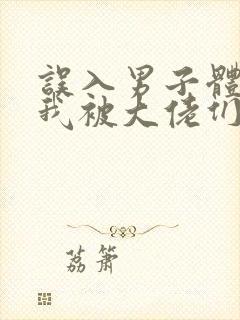 誤入男子體
我被大佬们
荔箫